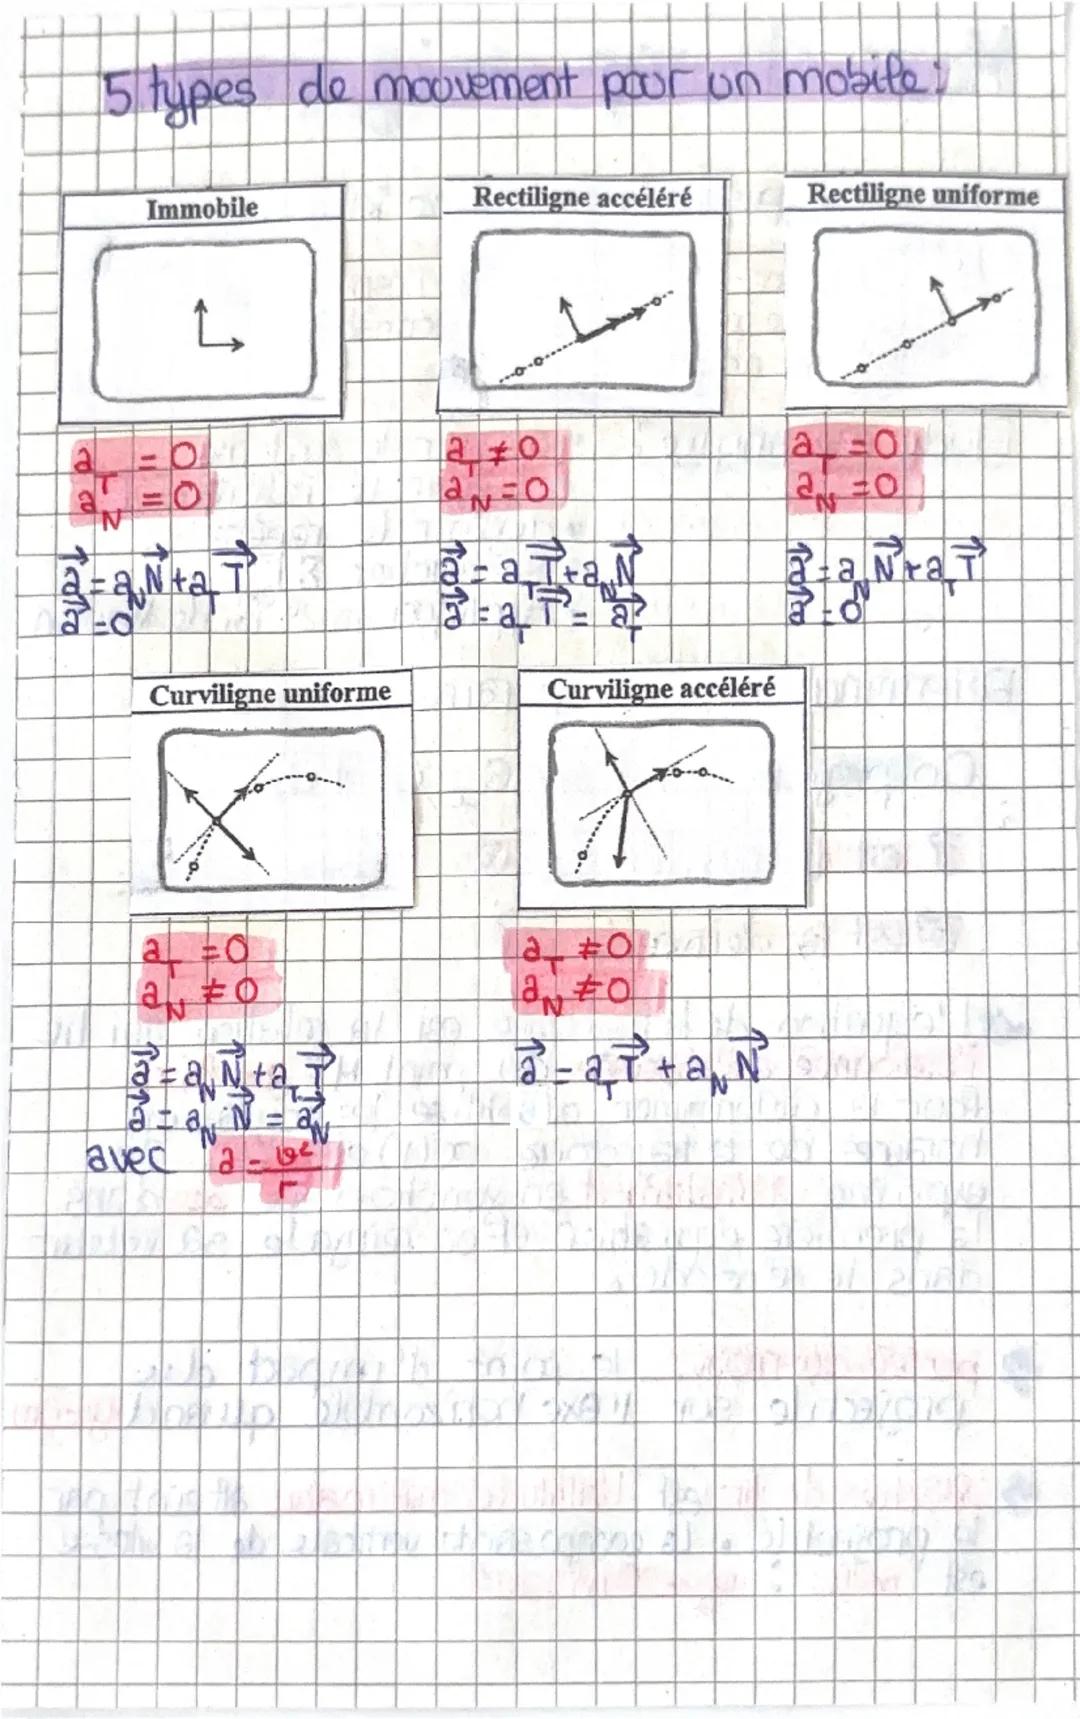 5 types de moovement pour un mobile :
Immobile
Rectiligne accéléré
Rectiligne uniforme
a_T = 0
a_N = 0
a⃗ = a_N N⃗ + a_T T⃗
a⃗ = 0
a_T ≠ 0
a_N = 0
a⃗ = a_T T⃗ + a_N N⃗
a⃗ = a_T T⃗ = a⃗_T
a_T = 0
a_N = 0
a⃗ = a_N N⃗ + a_T T⃗
a⃗ = 0
Curviligne uniforme
Curviligne accéléré
a_T = 0
a_N ≠ 0
a⃗ = a_N N⃗ + a_T T⃗
a⃗ = a_N N⃗ = a⃗_N
avec a = v²/r
a_T ≠ 0
a_N ≠ 0
a⃗ = a_T T⃗ + a_N N⃗